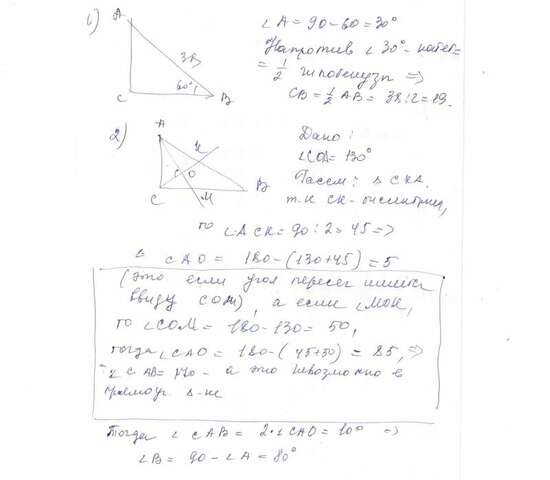 1)
A
38
60°
C
B
∠A = 90-60=30°
Напротив ∠30°- катет
= 1/2 гипотенузы ⇒
CB = 1/2 AB = 38:2=19.
2)
A
K
O
C
M
B
Дано:
∠COA=130°
Рассм: Δ CKA.
т.к CK- биссектриса,
то ∠ACK = 90:2 = 45 ⇒
∠ CAO = 180-(130+45)=5
(это если угол пересеч имели
ввиду COA), а если ∠MOK,
то ∠COM = 180-130= 50,
тогда ∠CAO = 180-(45+50)=85, ⇒
∠CAB= 170- а это невозможно в
прямоуг. Δ-ке
Тогда ∠ CAB= 2·∠CAO = 10° ⇒
∠B = 90-∠A = 80°